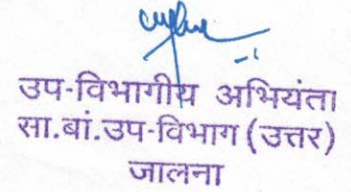 उप-विभागीय अभियंता
सा.बां.उप-विभाग (उत्तर)
जालना